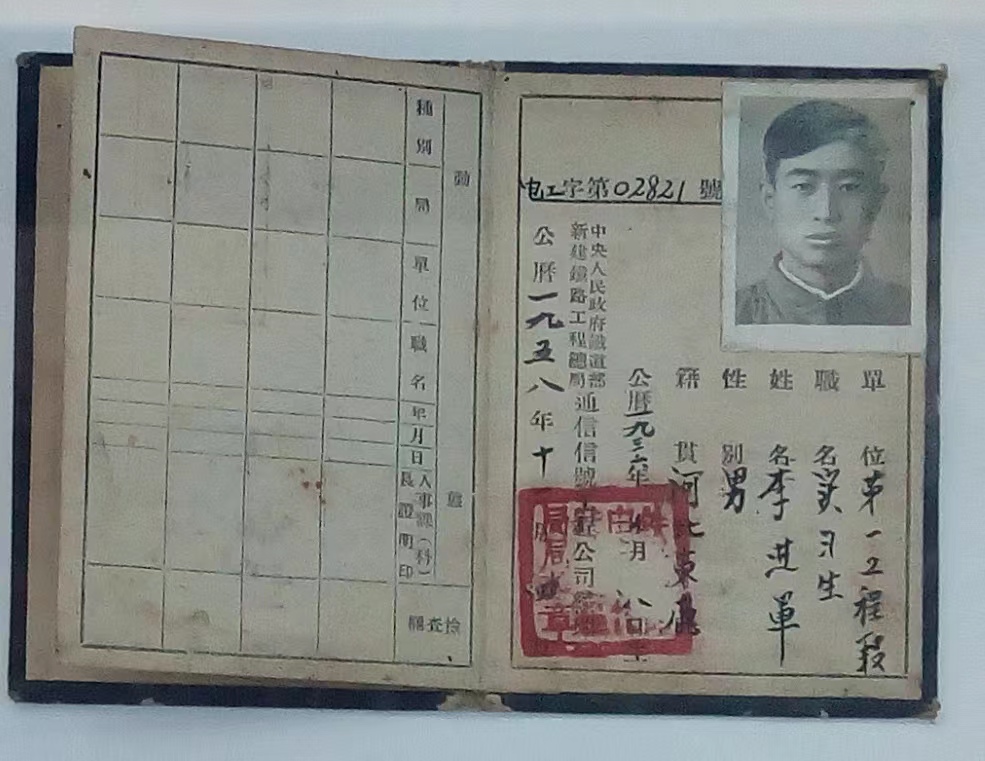 电工字第02821號
單位第一工程段
職名实习生
姓名李进軍
性别男
籍貫河北東鹿
公曆一九三六年 月八日生
中央人民政府鐵道部
新建鐵路工程總局
通信信號工程公司
公曆一九五八年十月
動態
種别
局
單位
職名
年月日
人事課（科）
長證明印
檢查欄